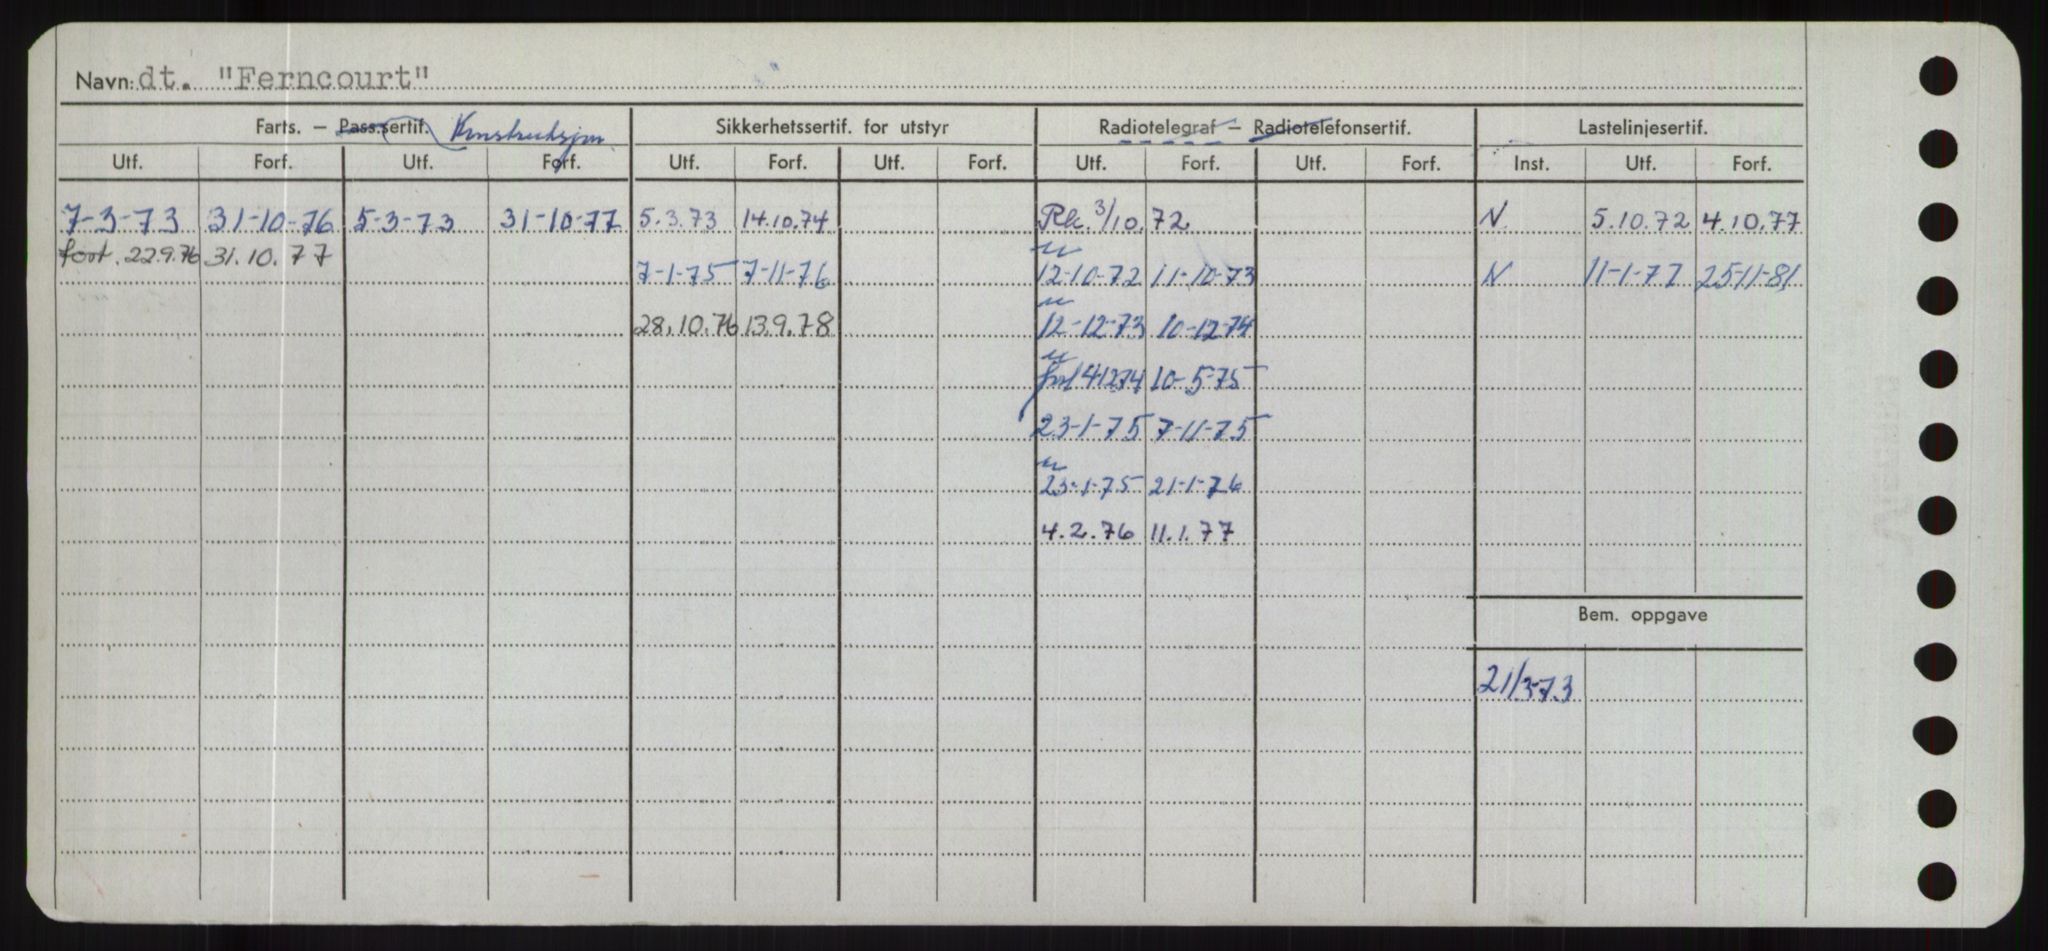 Navn: dt. "Ferncourt"
Farts. – Pass.sertif. Konstruksjon Sikkerhetssertif. for utstyr Radiotelegraf – Radiotelefonsertif. Lastelinjesertif.
Utf. Forf. Utf. Forf. Utf. Forf. Utf. Forf. Utf. Forf. Utf. Forf. Inst. Utf. Forf.
7-3-73 31-10-76 5-3-73 31-10-77 5.3.73 14.10.74 Rk. 3/10.72 N 5.10.72 4.10.77
fort. 22.9.76 31.10.77
7-1-75 7-11-76 12-10-72 11-10-73 N 11-1-77 25-11-81
28.10.76 13.9.78 12-12-73 10-12-74
41274 10-5-75
23-1-75 7-11-75
23-1-75 21-1-76
4.2.76 11.1.77
Bem. oppgave
21/3-73